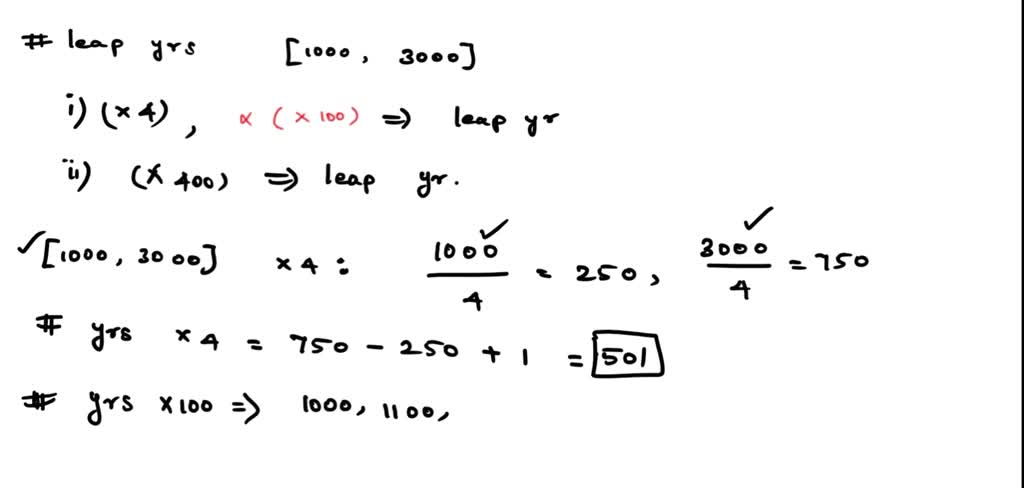 # leap yrs [1000, 3000]
i) (×4), × (×100) ⇒ leap yr
ii) (×400) ⇒ leap yr.
✓[1000, 3000] ×4: 1000/4 = 250, 3000/4 = 750
# yrs ×4 = 750 - 250 + 1 = 501
# yrs ×100 ⇒ 1000, 1100,